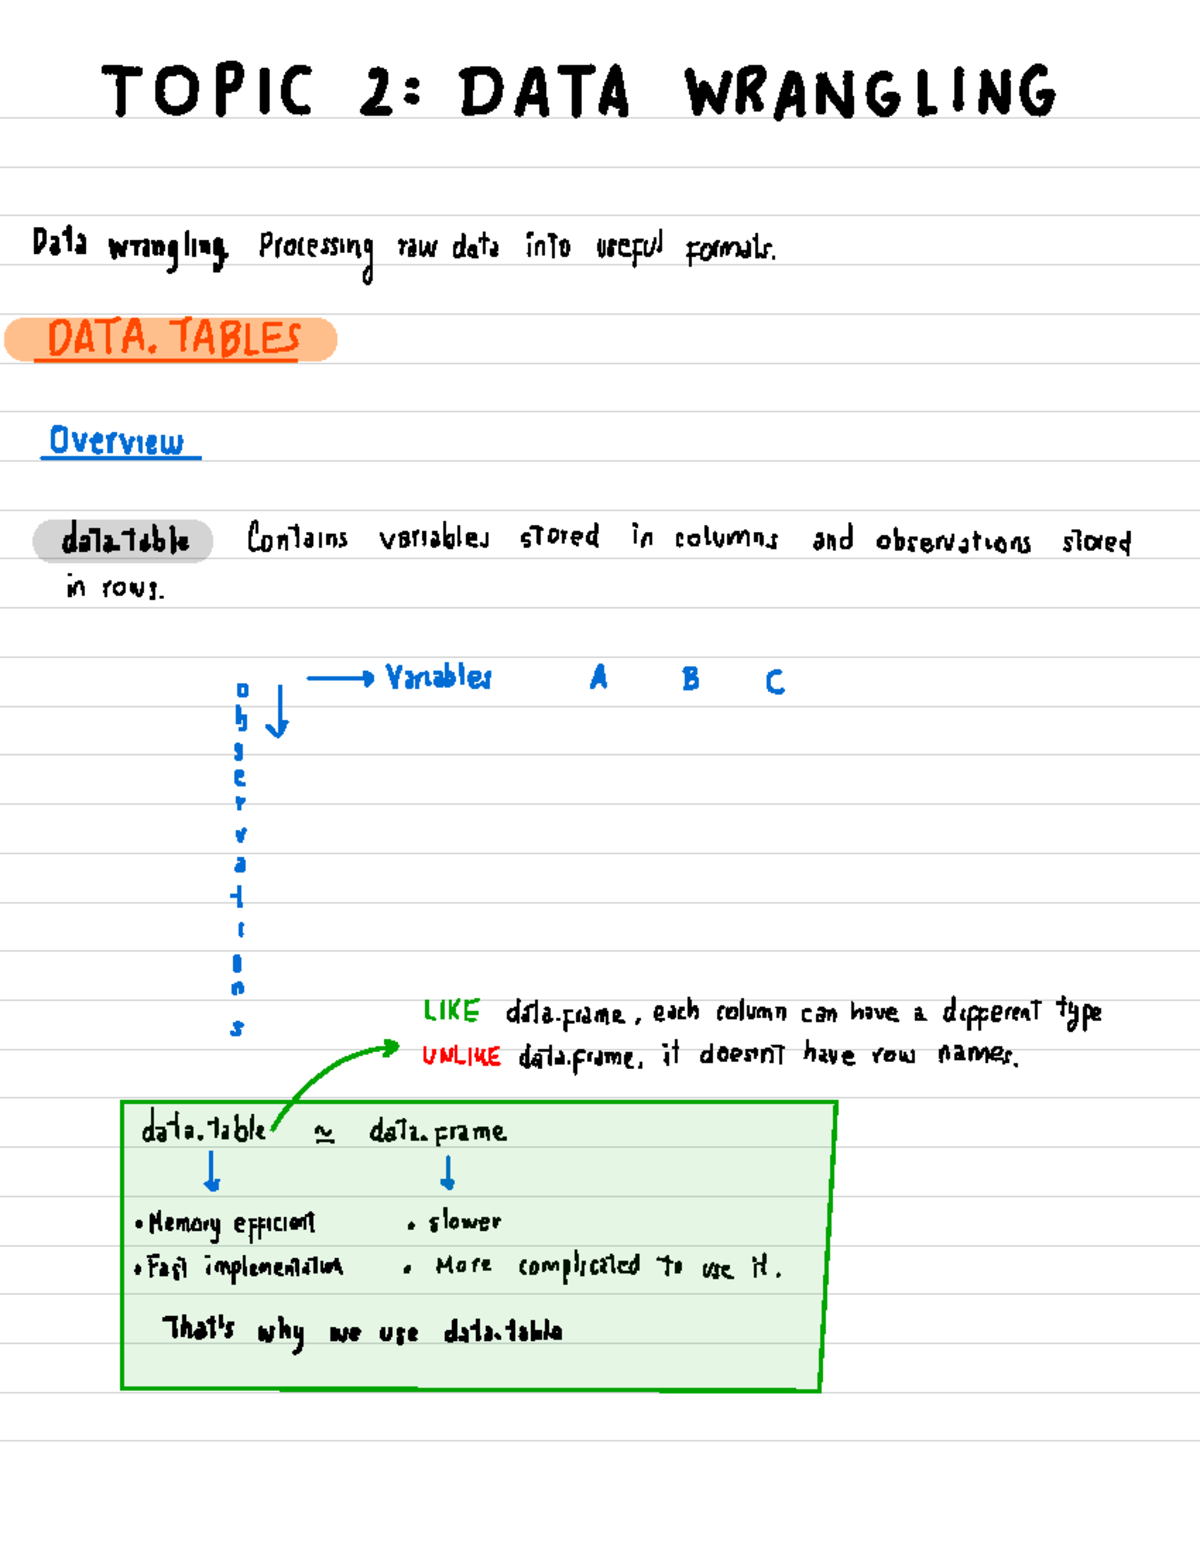 TOPIC 2: DATA WRANGLING
Data wrangling Processing raw data into useful formats.
DATA.TABLES
Overview
data.table Contains variables stored in columns and observations stored
in rows.
→ Variables A B C
observations
LIKE data.frame, each column can have a different type
UNLIKE data.frame, it doesn't have row names.
data.table ≃ data.frame
• Memory efficient • slower
• Fast implementation • More complicated to use it.
That's why we use data.table